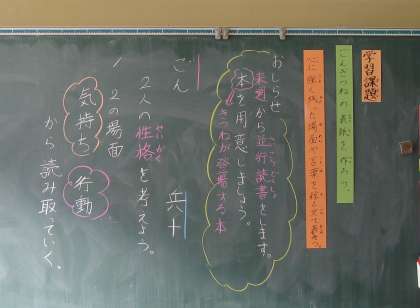 学習課題
ごんぎつねの表紙を作ろう。
心に強く残った場面や言葉を伝え合って表そう。
おしらせ
来週から並行読書をします。
本を用意しましょう。
きつねが登場する本
ごん 兵十
2人の性格を考えよう。
せいかく
1、2の場面
気持ち 行動
から読み取っていく。